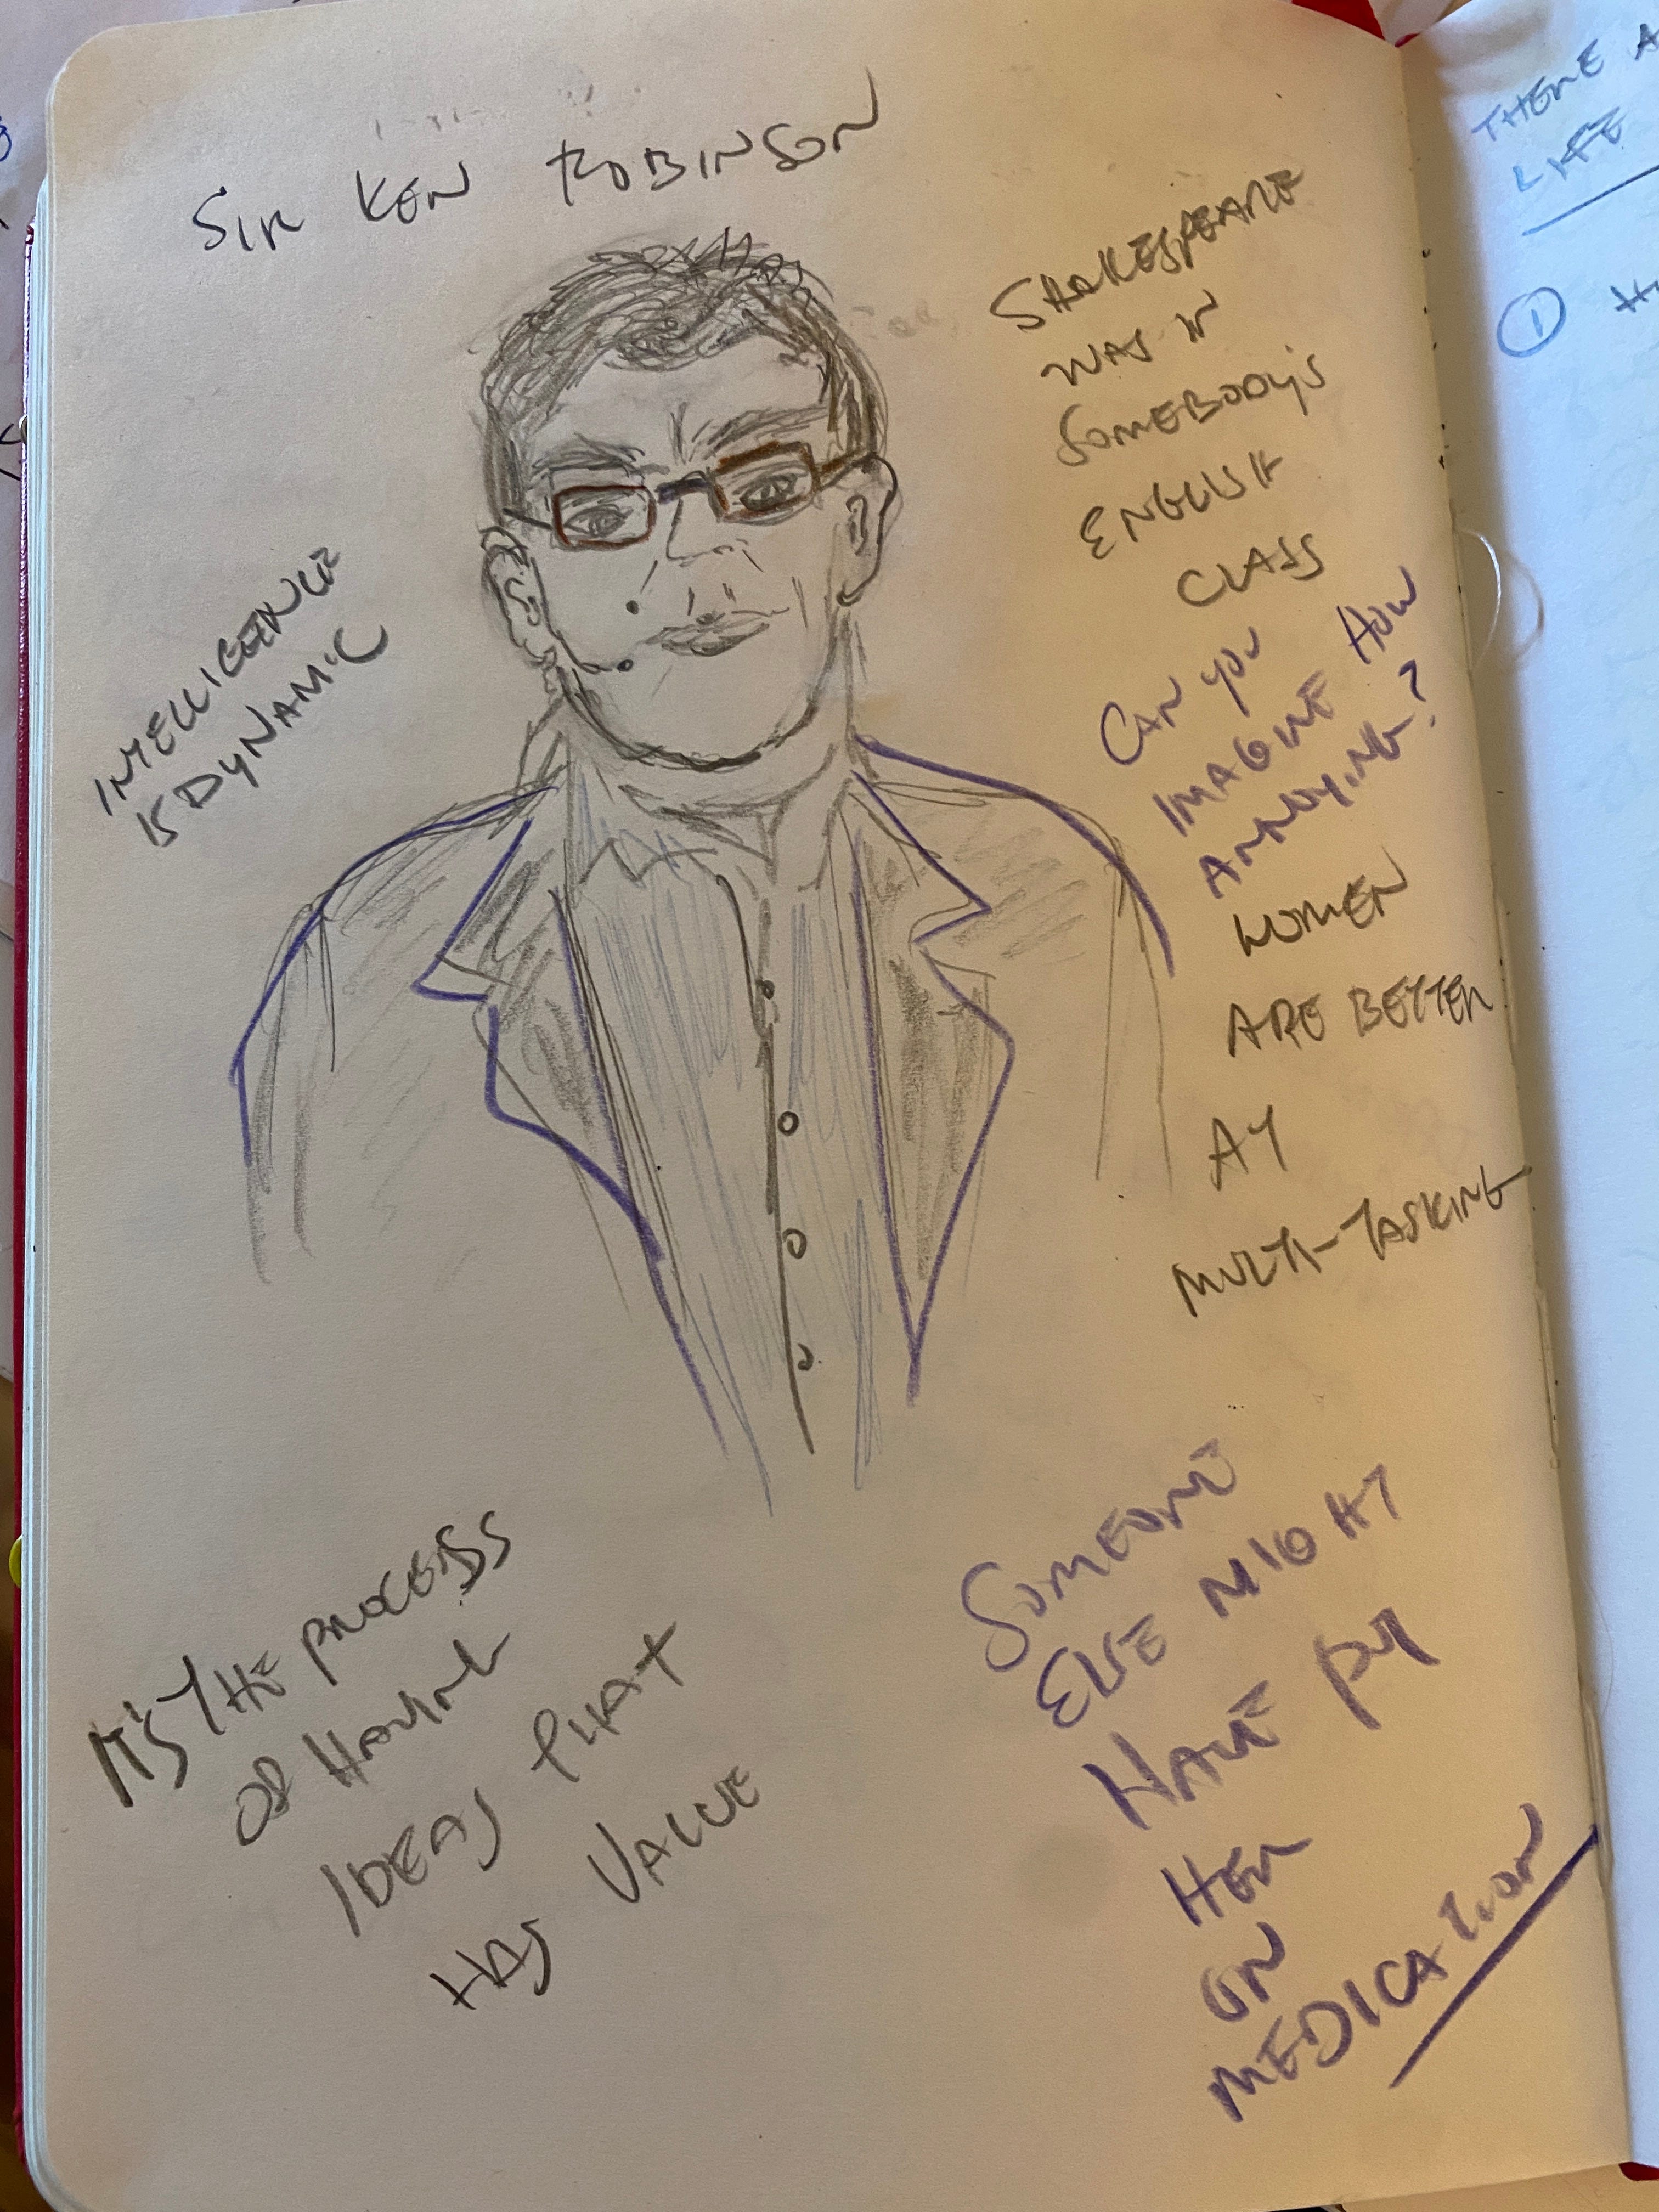 SIR KEN ROBINSON
INTELLIGENCE
IS DYNAMIC
SHAKESPEARE
WAS IN
SOMEBODY'S
ENGLISH
CLASS
CAN YOU
IMAGINE HOW
ANNOYING?
WOMEN
ARE BETTER
AT
MULTI-TASKING
IT'S THE PROCESS
OF HAVING
IDEAS THAT
HAS VALUE
SOMEONE
ELSE MIGHT
HAVE PUT
HER
ON
MEDICATION
THERE
LIFE
1